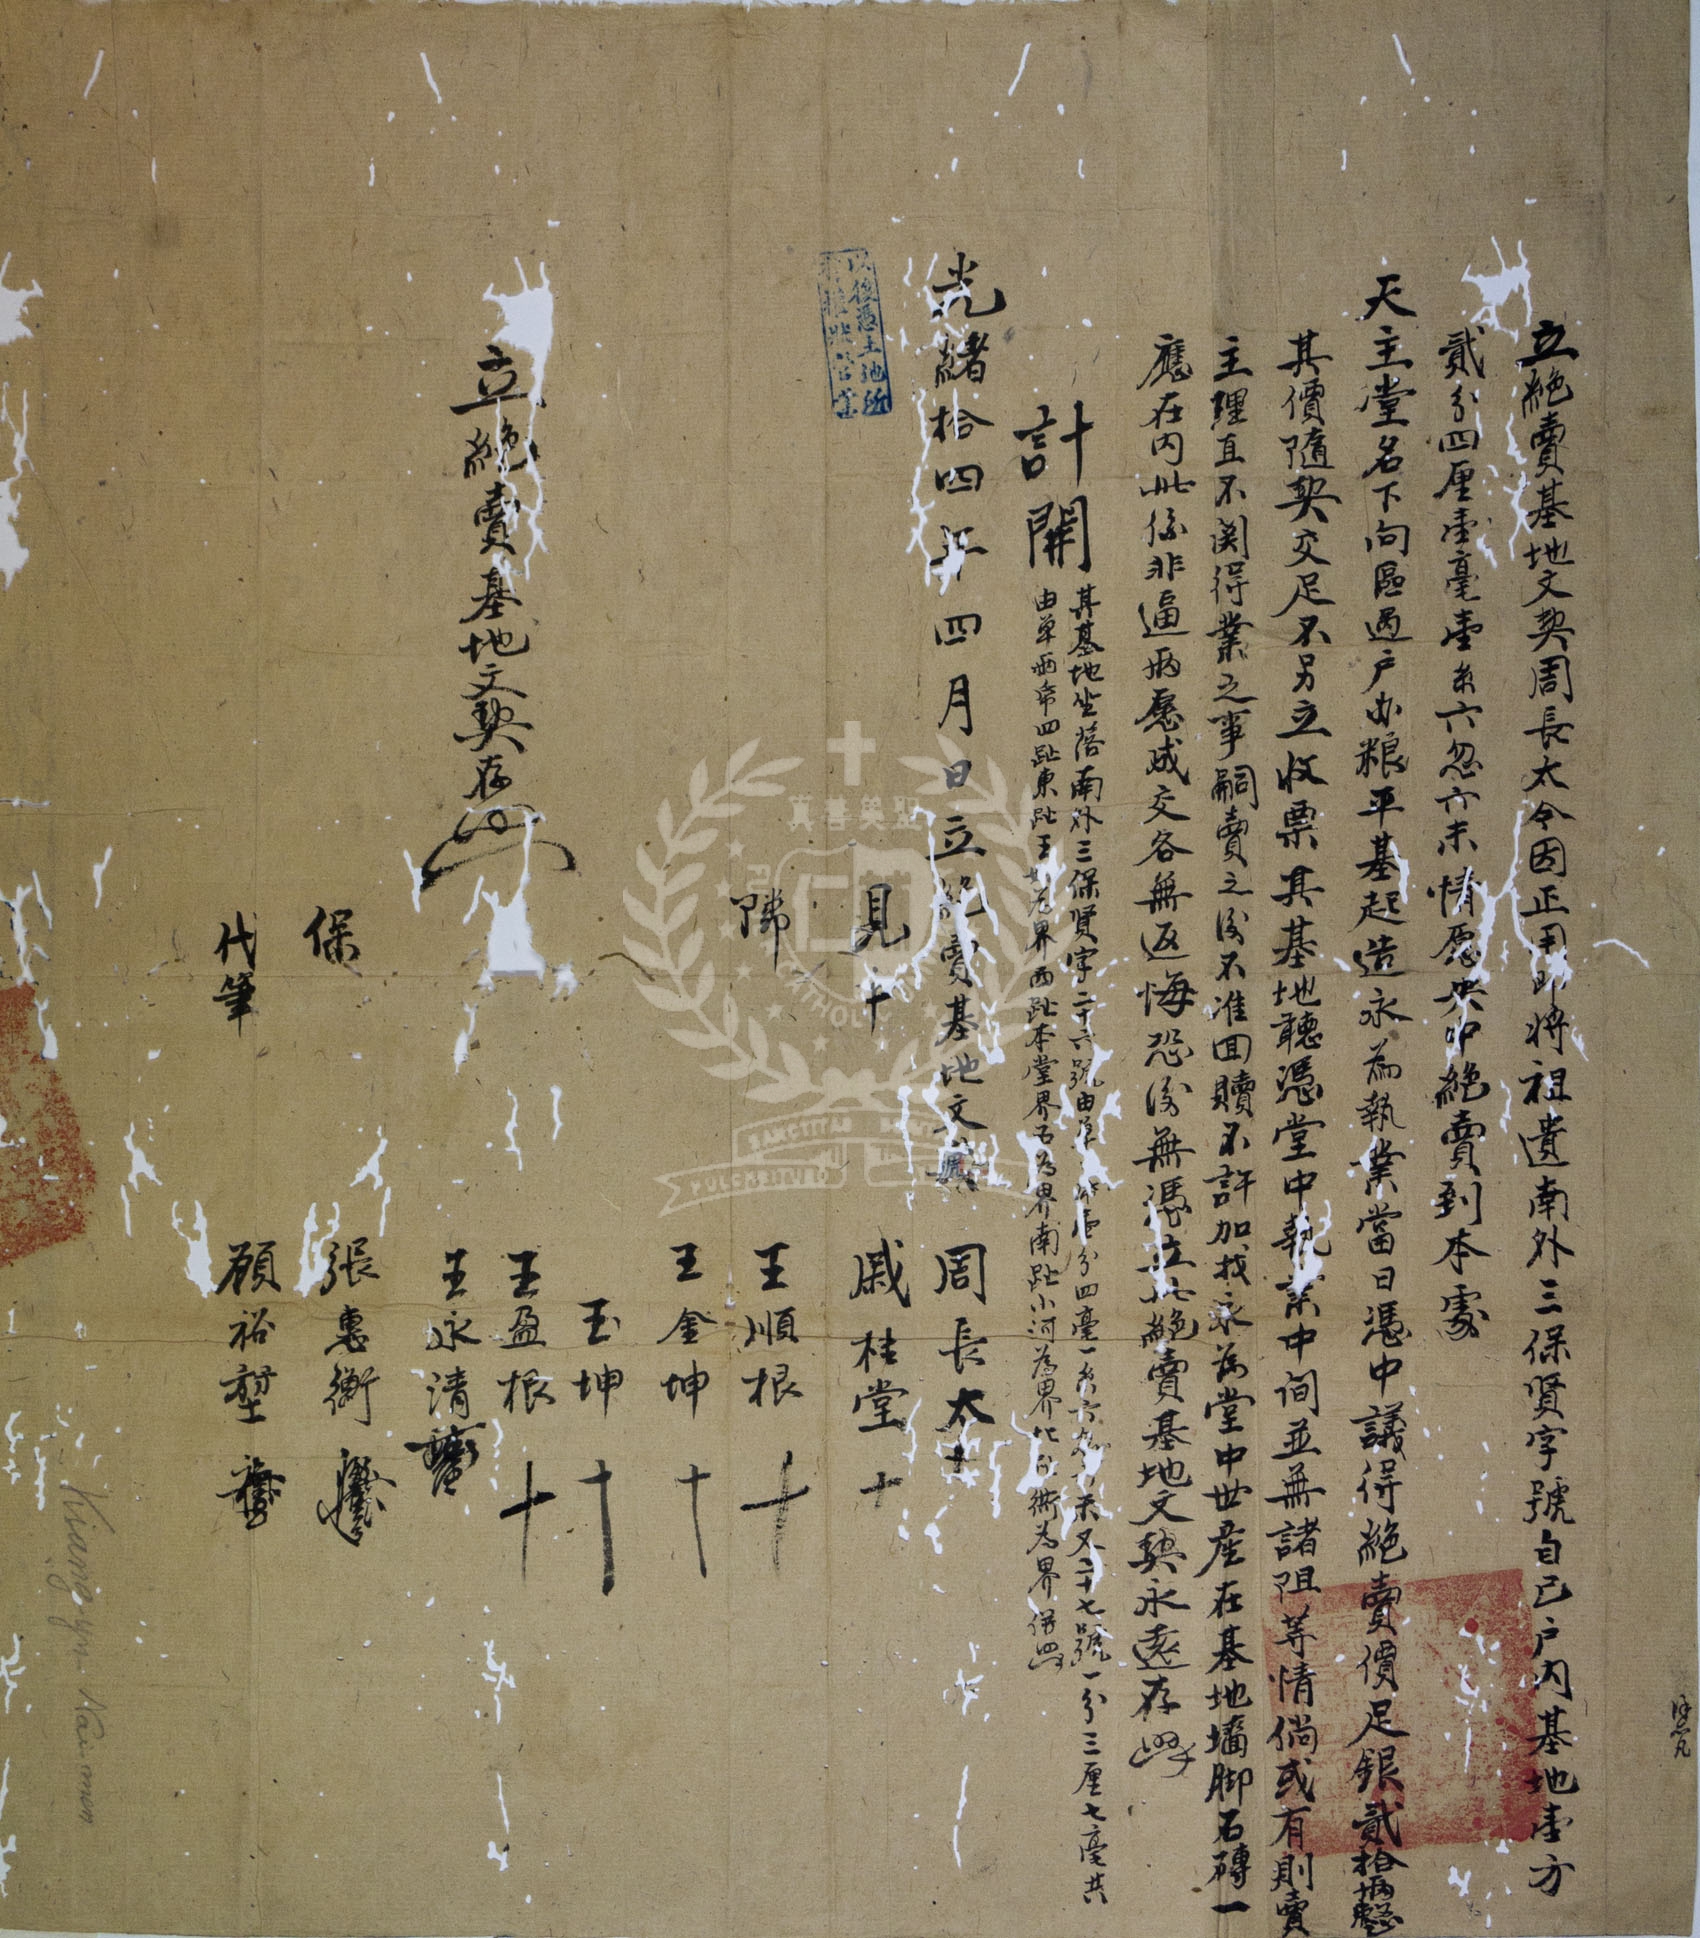 立絕賣基地文契周長太今因正用即將祖遺南外三保賢字號自己户内基地壹方
貳分四厘壹毫壹糸六忽六未情愿央中絕賣到本處
天主堂名下向區過户办粮平基起造永為執業當日憑中議得絕賣價足銀貳拾兩整
其價隨契交足不另立收票其基地聽憑堂中執業中间並無諸阻等情倘或有則賣
主理直不関得業之事嗣賣之後不准囬贖不許加找永為堂中世産在基地墻脚石磚一
應在内此係非逼兩愿成交各無返悔恐後無憑立此絕賣基地文契永遠存照
計開
其基地坐落南外三保賢字二十六號由單分四毫一糸六又二十七號一分三厘七毫共
由單兩帋四趾東趾王為界西趾本堂界石為界南趾小河為界北衖為界併照
光緒拾四年四月日立絕賣基地文契 周長太十
見十 戚桂堂十
隣 王順根十
王金坤十
王坤十
王盈根十
王永清
立絕賣基地文契存照
保 張惠衡
代筆 顧裕堃
以後憑土地所
有權狀管業
真善美聖
CATHOLIC
SANCTITAS
PULCHRITUDO
Kiangyn Nan men